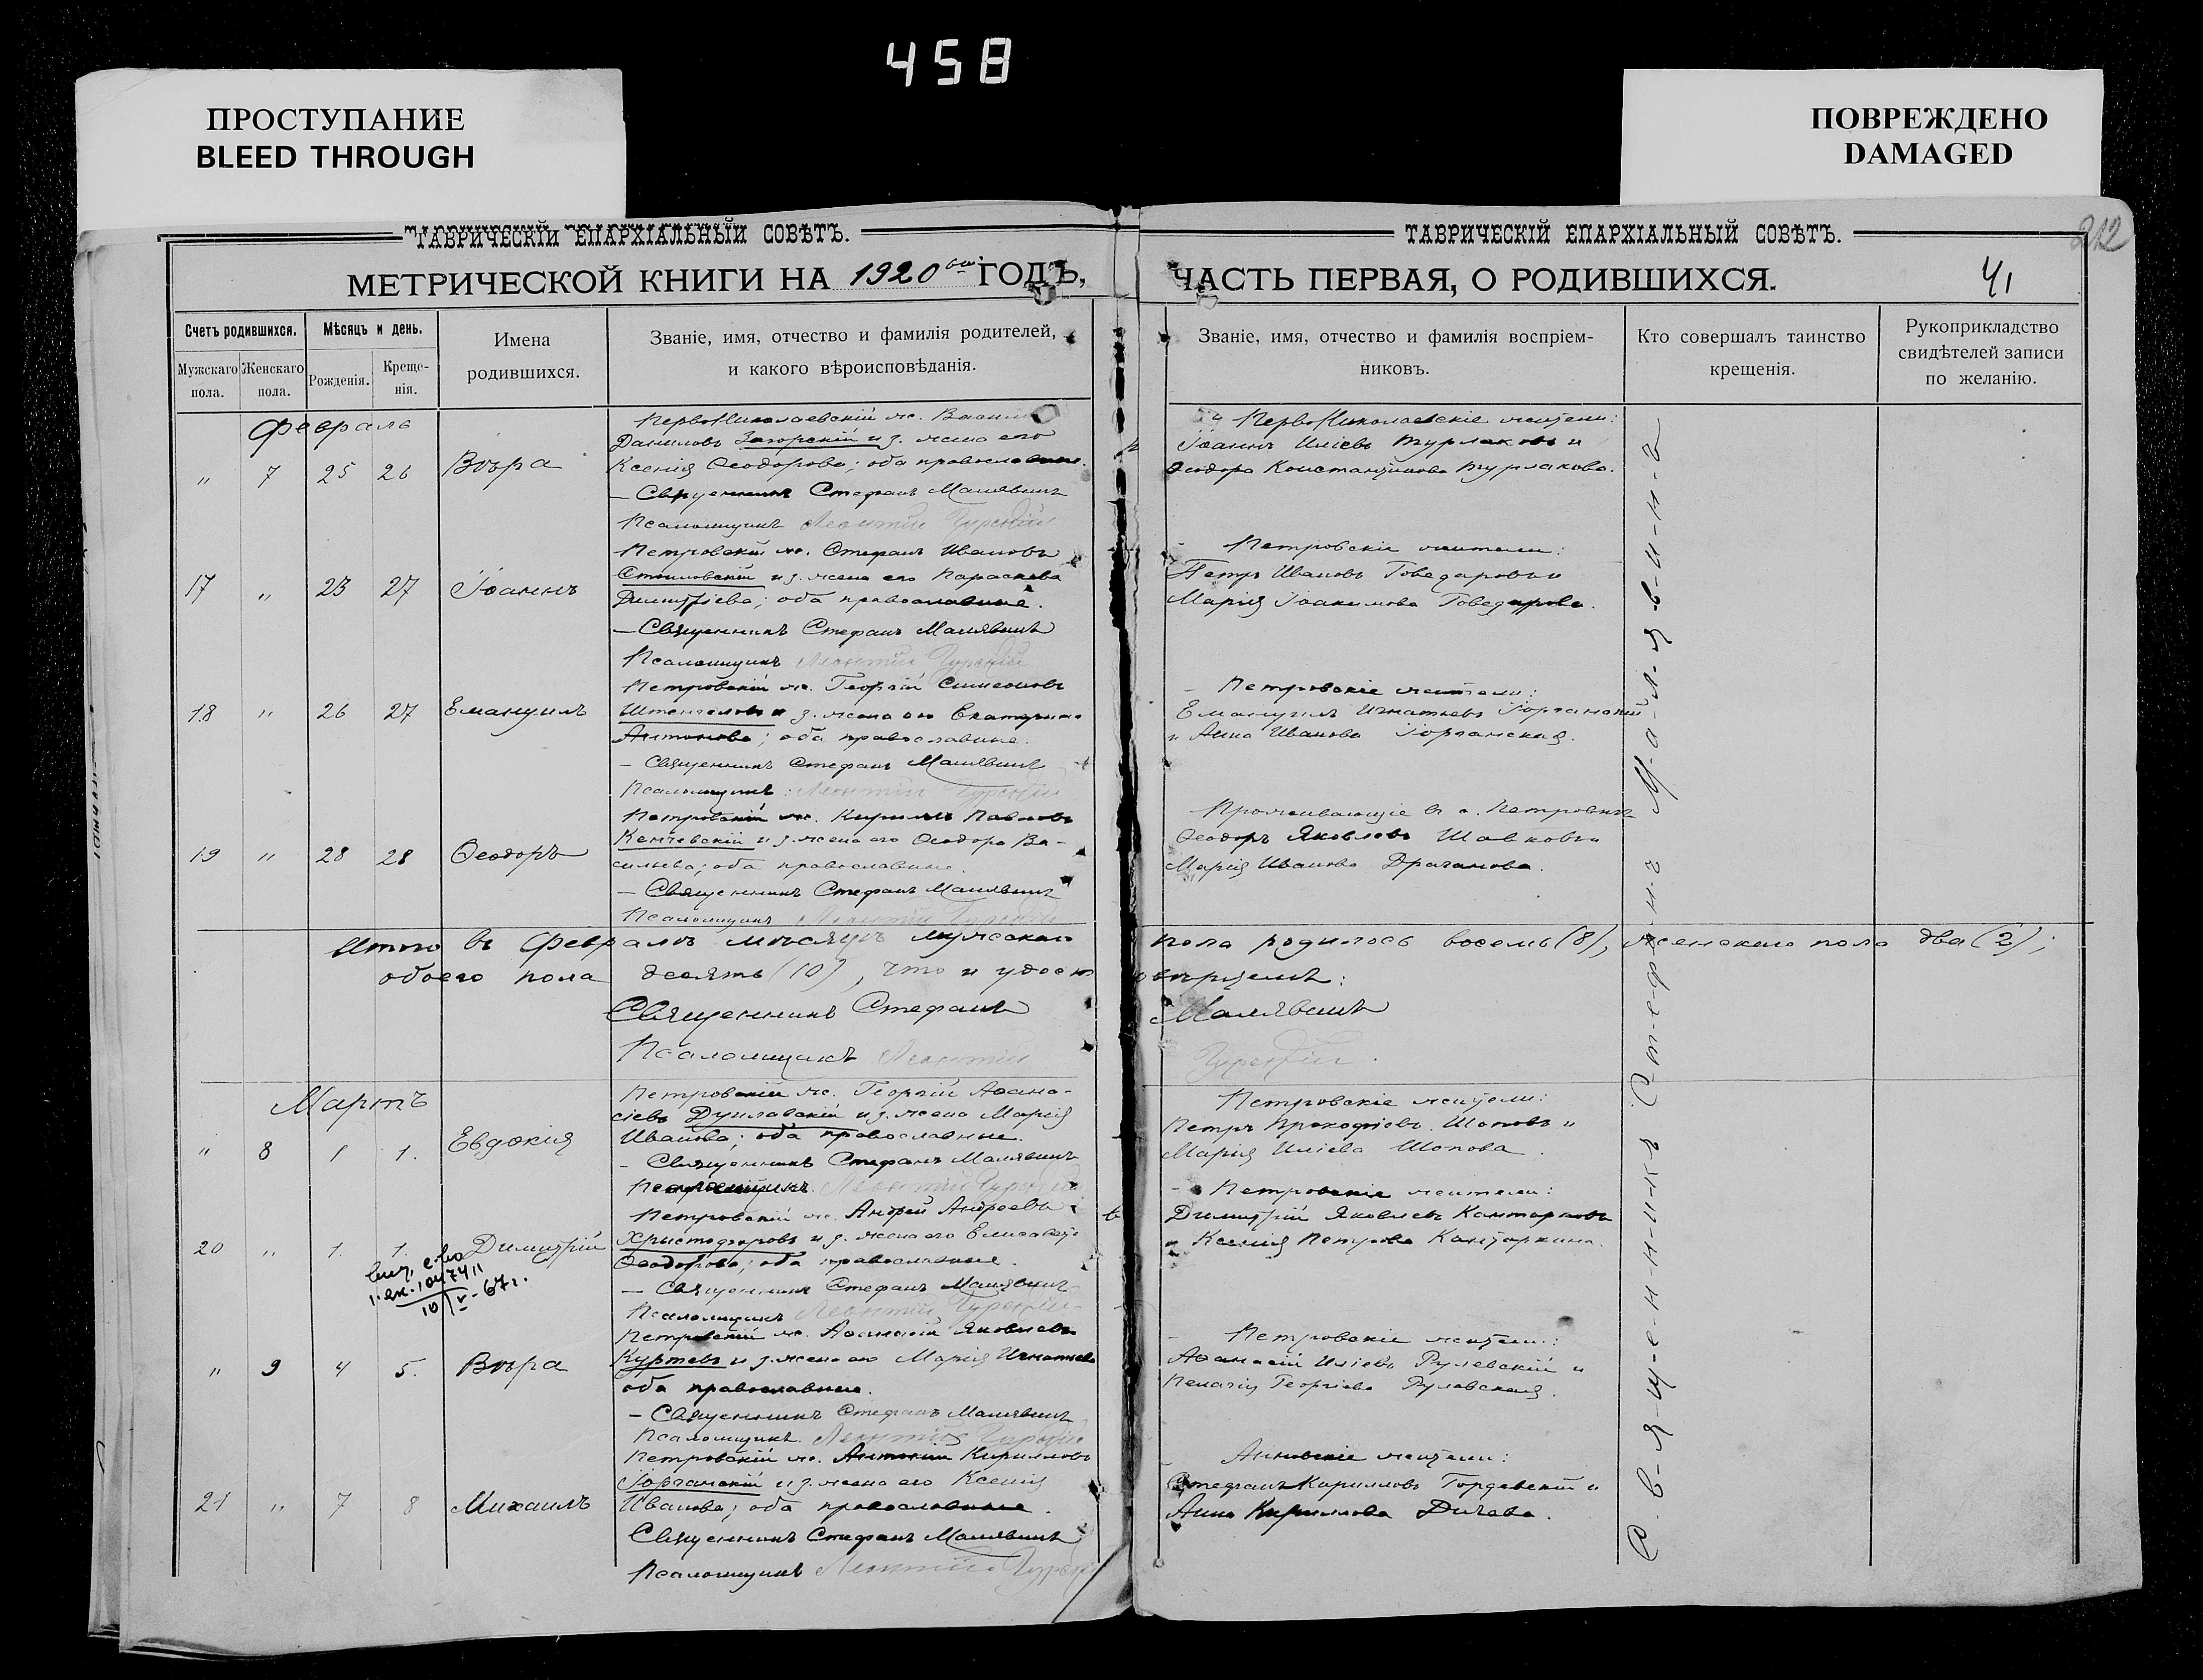 458
ПРОСТУПАНИЕ
BLEED THROUGH
ПОВРЕЖДЕНО
DAMAGED
ТАВРИЧЕСКІЙ ЕПАРХІАЛЬНЫЙ СОВѢТЪ.
МЕТРИЧЕСКОЙ КНИГИ НА 1920 ГОДЪ,
Счетъ родившихся.
Мѣсяцъ и день.
Мужскаго пола.
Женскаго пола.
Рожденія.
Креще-
нія.
Имена
родившихся.
Званіе, имя, отчество и фамилія родителей,
и какого вѣроисповѣданія.
Февраль
" 7 25 26 Вѣра
ПервоНиколаевскій ж.
Даниловъ Загорскій и з. жена его
Ксенія Ѳеодорова; оба православные.
— Священникъ Стефанъ Малявинъ
Псаломщикъ Леонтій
17 " 23 27 Іоаннъ
Петровскій ж. Стефанъ Ивановъ
Стоиловскій и з. жена его Параскева
Димитріева; оба православные.
— Священникъ Стефанъ Малявинъ
Псаломщикъ Леонтій
18 " 26 27 Емануилъ
Петровскій ж. Георгій Симеоновъ
и з. жена его Екатерина
Антонова; оба православные.
— Священникъ Стефанъ Малявинъ
Псаломщикъ Леонтій
19 " 28 28 Ѳеодоръ
Петровскій ж. Кириллъ Павловъ
и з. жена его Ѳеодора Ва-
сильева; оба православные.
— Священникъ Стефанъ Малявинъ
Псаломщикъ Леонтій
Итого въ Февралѣ мѣсяцѣ мужскаго
обоего пола десять (10), что и удосто
Священникъ Стефанъ
Псаломщикъ Леонтій
Мартъ
" 8 1 1. Евдокія
Петровскій ж. Георгій Аѳана-
сіевъ и з. жена Марія
Иванова; оба православные.
— Священникъ Стефанъ Малявинъ
Псаломщикъ Леонтій
20 " 1. 1. Димитрій
10/V-67г.
Петровскій ж. Андрей Андреевъ
Христофоровъ и з. жена его Елисавета
Ѳеодорова; оба православные.
— Священникъ Стефанъ Малявинъ
Псаломщикъ Леонтій
" 9 4 5. Вѣра
Петровскій ж. Аѳанасій Яковлевъ
Куртевъ и з. жена его Марія Игнатьева
оба православные.
— Священникъ Стефанъ Малявинъ
Псаломщикъ Леонтій
21 " 7 8 Михаилъ
Петровскій ж. Антоній Кирилловъ
и з. жена его Ксенія
Иванова; оба православные.
Священникъ Стефанъ Малявинъ
Псаломщикъ Леонтій
ТАВРИЧЕСКІЙ ЕПАРХІАЛЬНЫЙ СОВѢТЪ.
212
ЧАСТЬ ПЕРВАЯ, О РОДИВШИХСЯ.
41
Званіе, имя, отчество и фамилія воспріем-
никовъ.
Кто совершалъ таинство
крещенія.
Рукоприкладство
свидѣтелей записи
по желанію.
ПервоНиколаевскіе жители:
Іоаннъ Иліевъ Бурлаковъ и
Ѳеодора Константинова Бурлакова.
Петровскіе жители:
Петръ Ивановъ Говедаровъ и
Марія Іоакимова Говедарова.
Петровскіе жители:
Емануилъ Игнатьевъ
и Анна Иванова
Проживающіе въ с. Петровкѣ
Ѳеодоръ Яковлевъ Шавковъ и
Марія Иванова Драганова.
пола родилось восемь (8), женскаго пола два (2);
Малявинъ
Петровскіе жители:
Петръ Прокофіевъ Шоповъ и
Марія Иліева Шопова.
Петровскіе жители:
Димитрій Яковлевъ
и Ксенія Петрова
Петровскіе жители:
Аѳанасій Иліевъ Рулевскій и
Пелагія Георгіева Рулевская.
Анновскіе жители:
Стефанъ Кирилловъ и
Анна Кириллова Дичева.
С-в-я-щ-е-н-н-и-к-ъ С-т-е-ф-а-н-ъ М-а-л-я-в-и-н-ъ